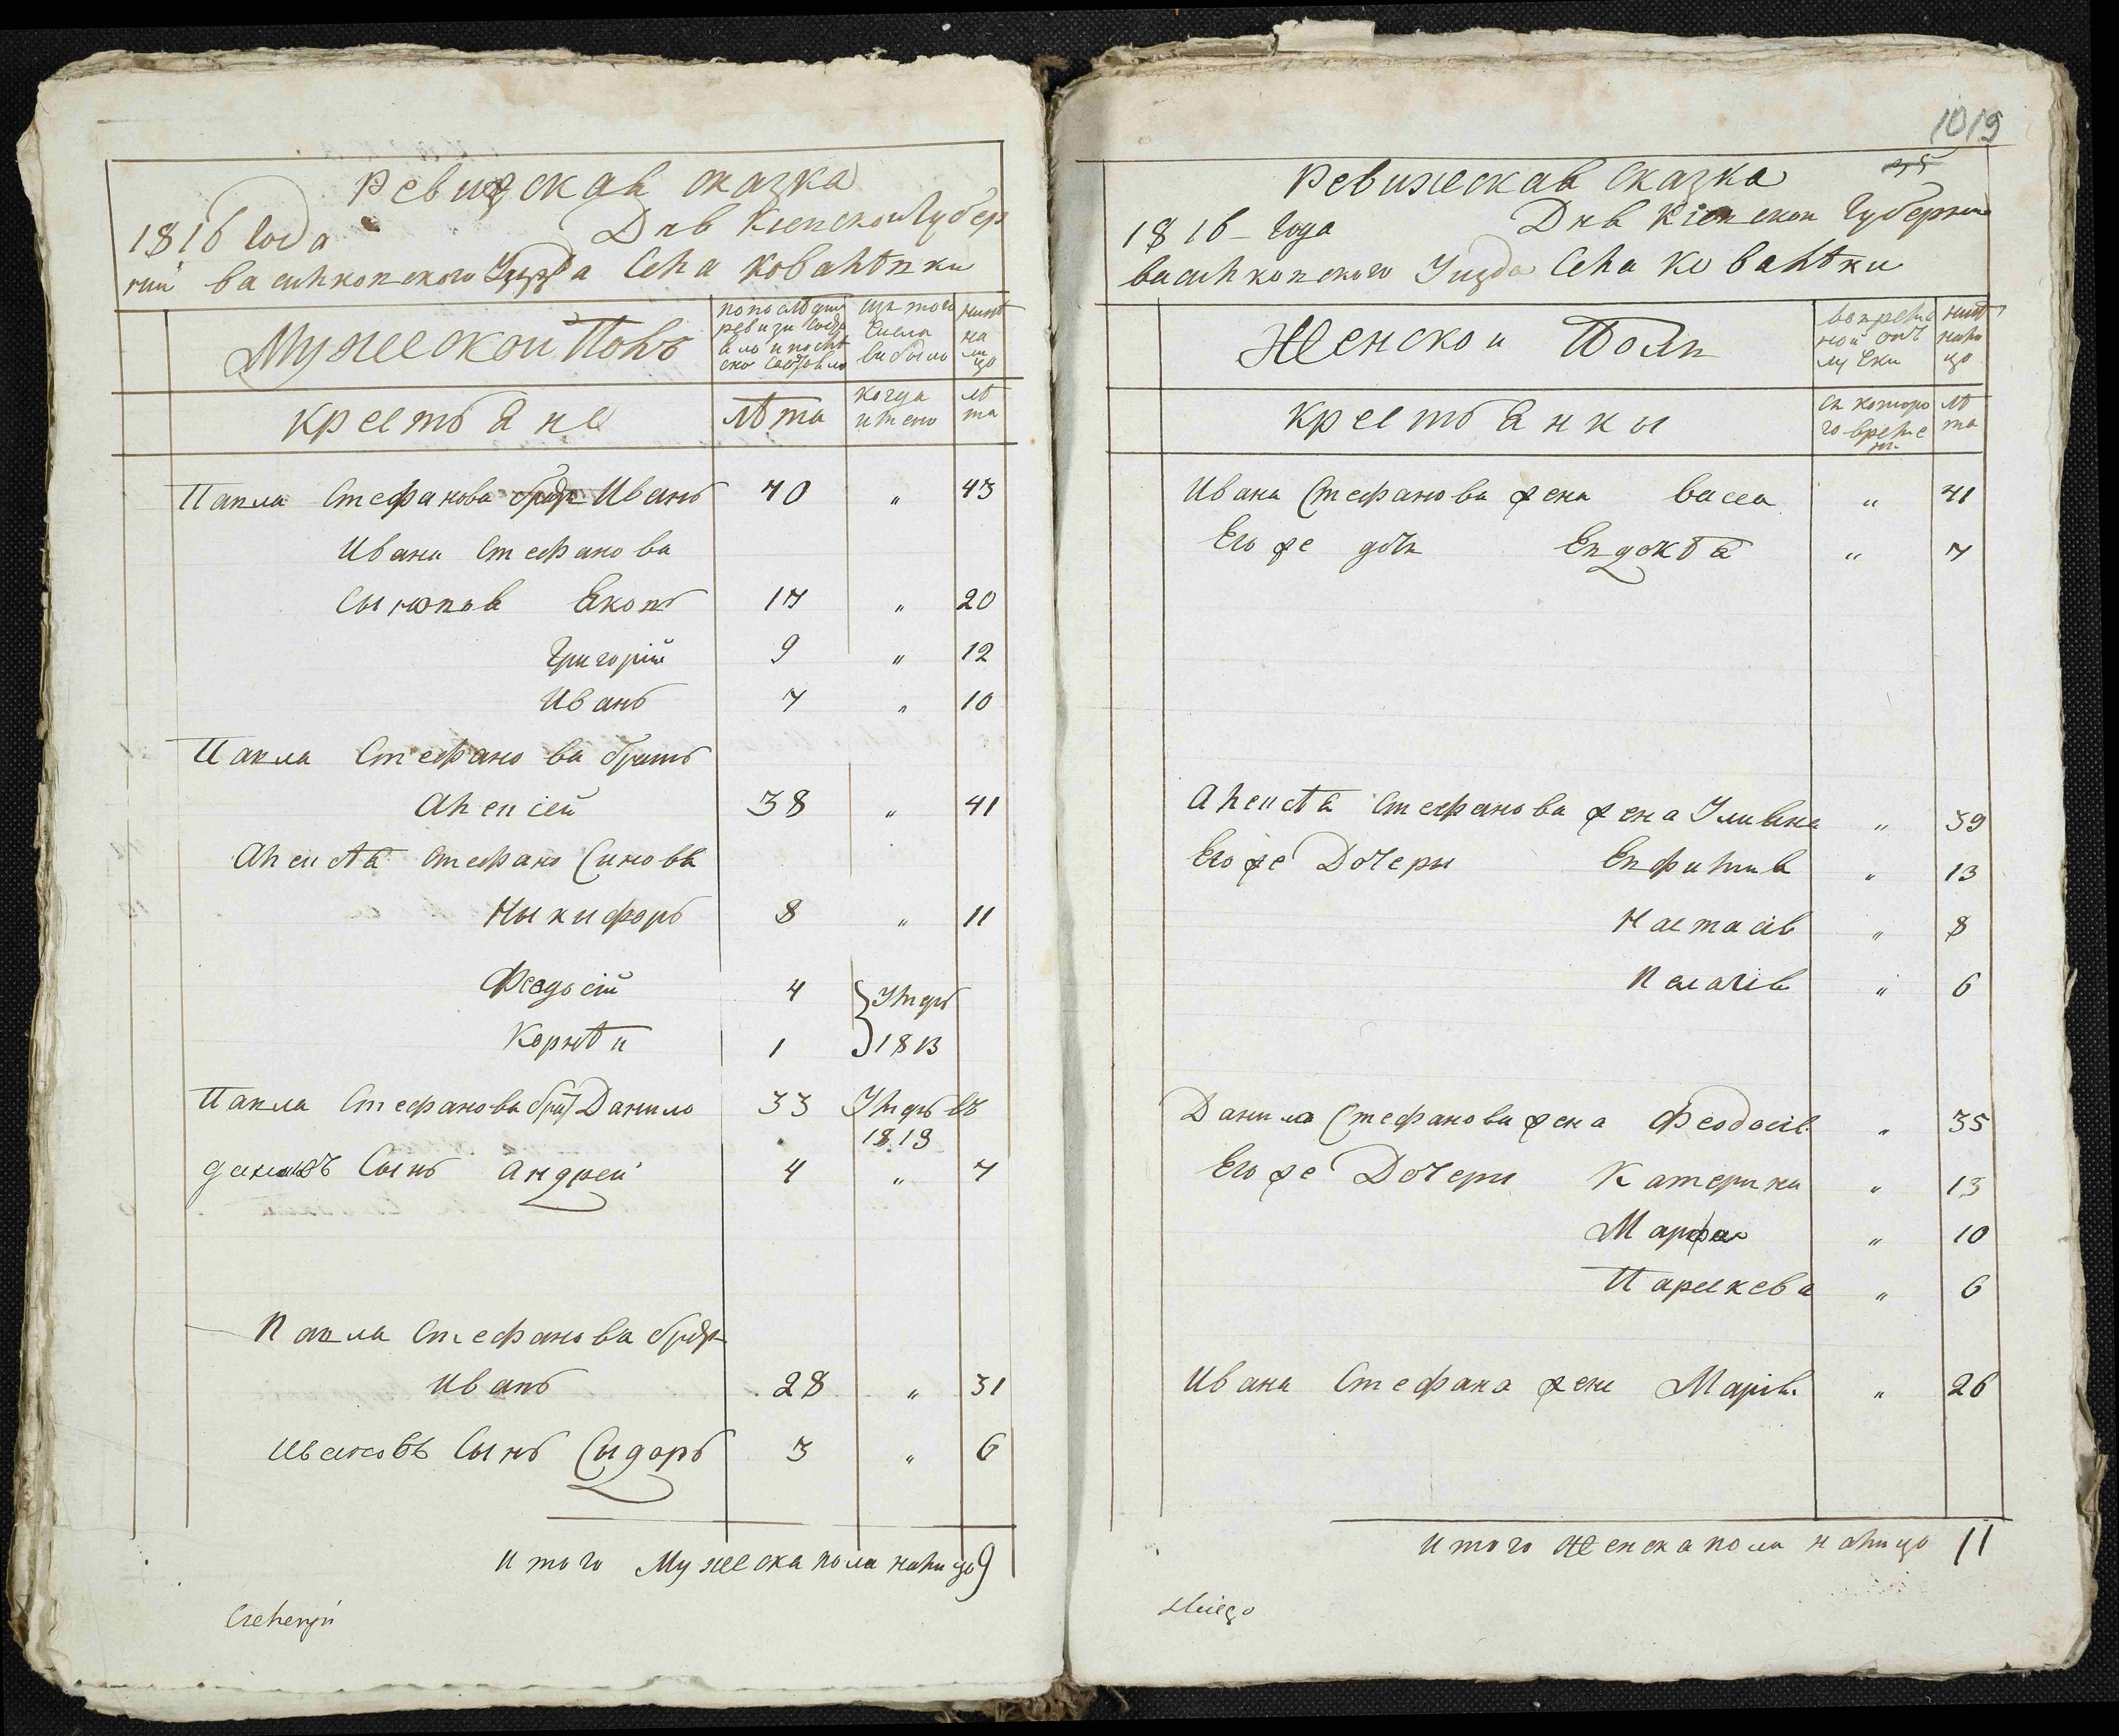 Ревизская сказка
1816 года Дня Кіевской Губер
ніи Василковского Уезда Села Ковалѣвки
Мужеской Полъ
по последней ревизи состояло и после оной
изъ того числа выбыло
нинѣ на лицо
крестьяне
лѣта
когда имено
лѣта
Павла Стефанова братъ Иванъ 40 " 43
Ивана Стефанова
сыновя Яковъ 17 " 20
Григорій 9 " 12
Иванъ 7 " 10
Павла Стефанова братъ
Алексей 38 " 41
Алексѣя Стефано Синовя
Ныкифоръ 8 " 11
Феодосій 4 Умеръ
Корнѣй 1 1813
Павла Стефанова братъ Данило 33 Умеръ въ
1813
Даниловъ Сынъ Андрей 4 " 7
Павла Стефанова братъ
Иванъ 28 " 31
Ивановъ Сынъ Сыдоръ 3 " 6
итого Мужеска пола налицо 9
1019
Ревижская Сказка
1816 года Дня Кіевской Губерніи
Василковского Уезда Села Ковалѣвки
Женской Полъ
во временной отлучки
нинѣ налицо
крестьянки
съ которого времени
лѣта
Ивана Стефанова жена Васса " 41
Его же дочь Евдокѣя " 7
Алексѣя Стефанова жена Улияна " 39
Его же Дочери Евфимия " 13
Настасія " 8
Пелагія " 6
Данила Стефанова жена Феодосія " 35
Его же Дочери Катерина " 13
Марфа " 10
Парскева " 6
Ивана Стефана жена Марія " 26
итого женска пола налицо 11